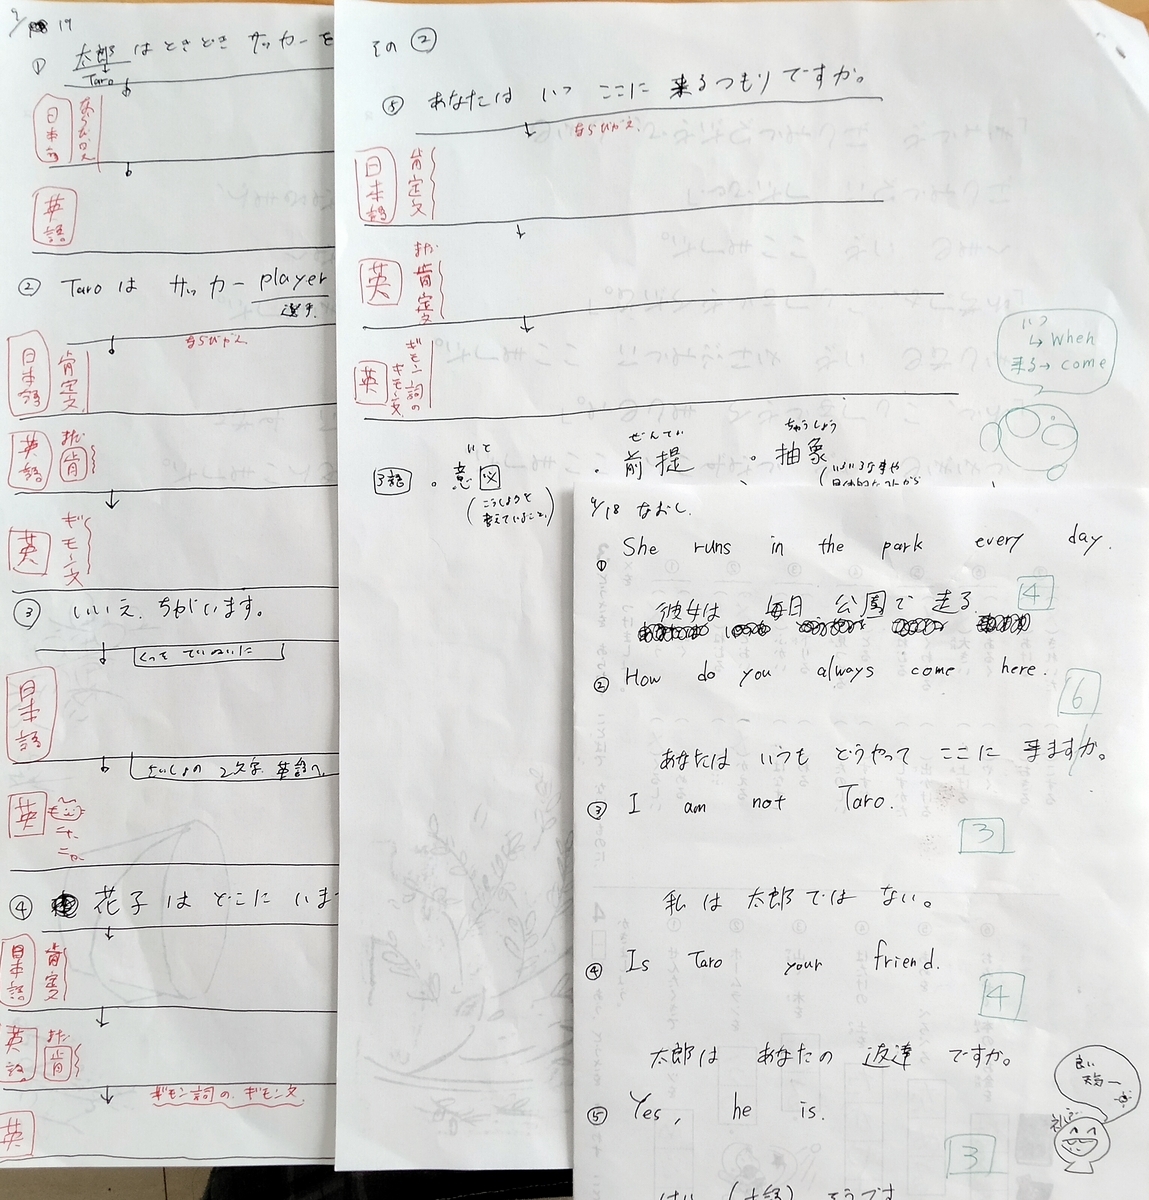 9/19
① 太郎はときどき サッカーを
Taro
日本語 ならびかえ
英語
② Taro は サッカー player
選手
ならびかえ
日本語 肯定文
英語 まだ 肯
英 ギモン文
③ いいえ、ちがいます。
くっそ ていねいに
日本語
さいしょの 2文字 英語へ
英
④ 花子 は どこに いま
日本語 肯定文
英語 まだ 肯
ギモン詞の ギモン文
英
その ②
⑤ あなたは いつ ここに 来るつもりですか。
ならびかえ
日本語 肯定文
英 まだ 肯定文
英 ギモン詞の ギモン文
いつ
↳ When
来る→ come
いと ぜんてい ちゅうしょう
・意図 ・前提 ・抽象
(こうしようと
考えていること)
9/18 なおし
① She runs in the park every day.
彼女は 毎日 公園で 走る
4
② How do you always come here.
6
あなたは いつも どうやって ここに 来ますか。
③ I am not Taro.
3
私 は 太郎 では ない。
④ Is Taro your friend.
4
太郎は あなたの 友達 ですか。
良い
天気ー
⑤ Yes, he is.
3
はい そうです